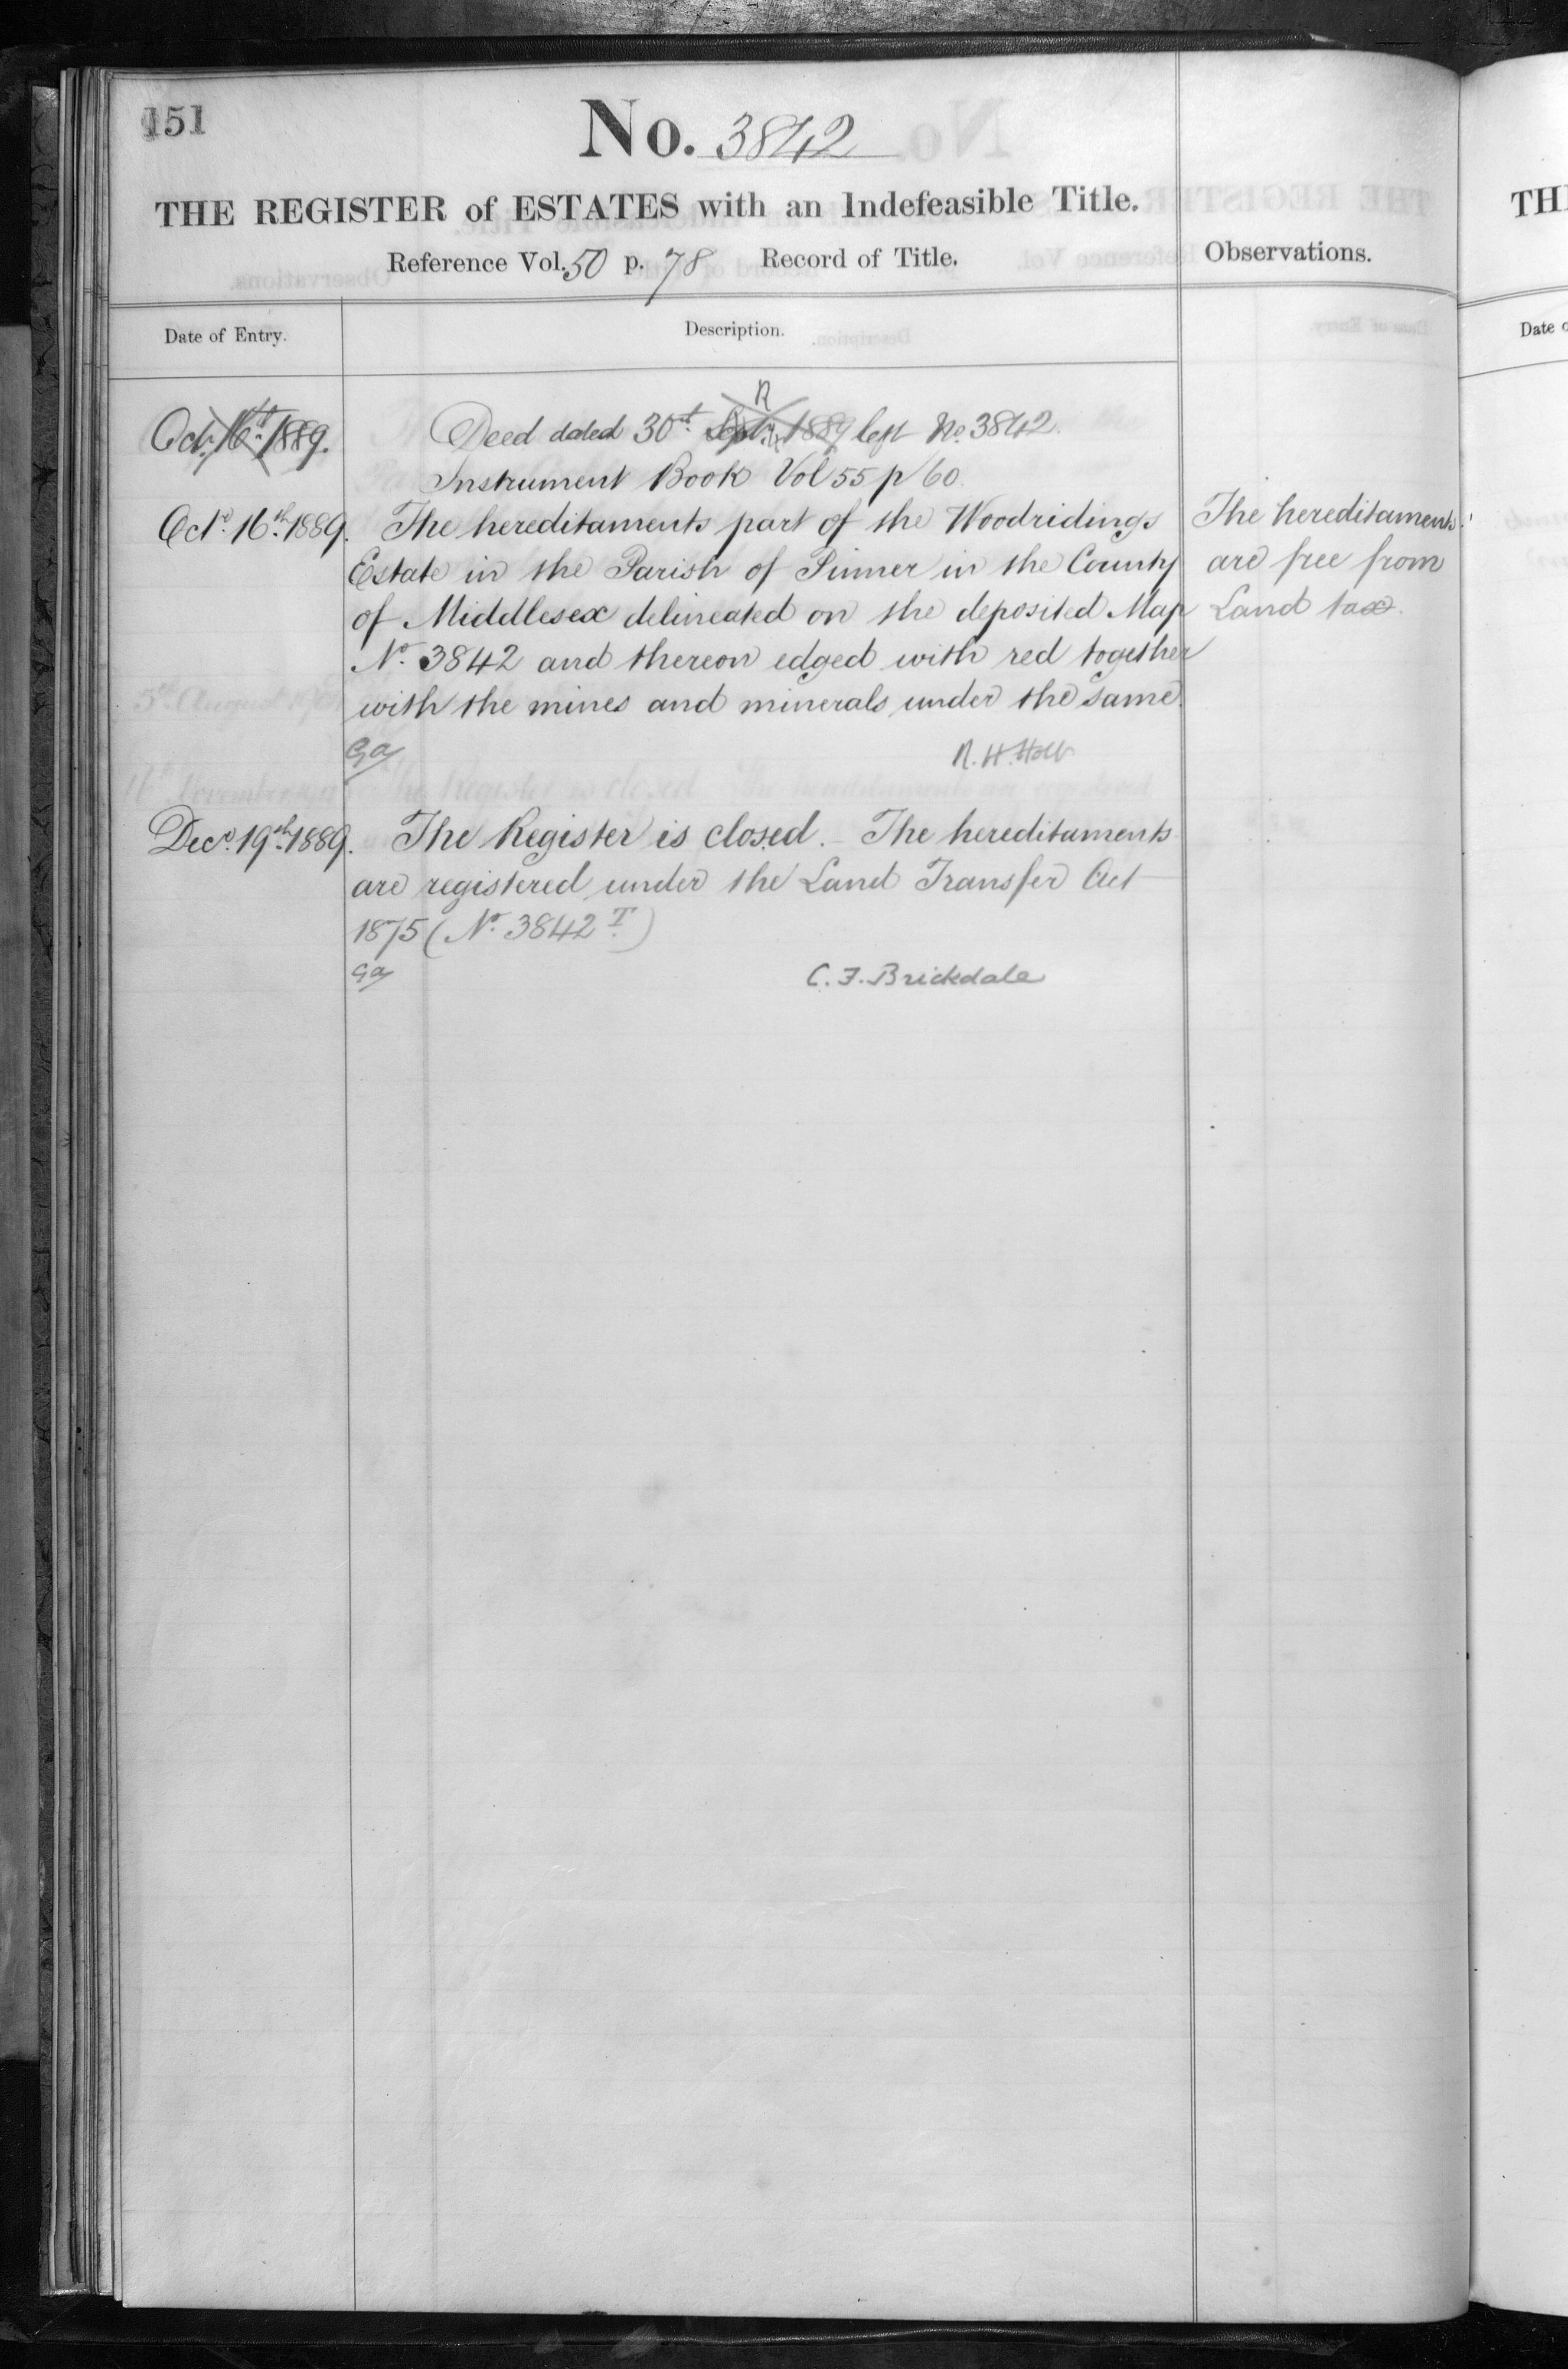 151
No. 3842
THE REGISTER of ESTATES with an Indefeasible Title.
Reference Vol. 50 p. 78 Record of Title.
Observations.
Date of Entry.
Description.
Oct. 16th 1889.
Deed dated 30th Sept. 1889 left No. 3842.
Instrument Book Vol 55 p 60.
Octr. 16th 1889.
The hereditaments part of the Woodridings
Estate in the Parish of Pinner in the County
of Middlesex delineated on the deposited Map
No. 3842 and thereon edged with red together
with the mines and minerals under the same.
Ga
R. H. Holt
The hereditaments
are free from
Land tax.
Decr. 19th 1889.
The Register is closed. – The hereditaments
are registered under the Land Transfer Act
1875 (No. 3842 T.)
Ga
C. F. Brickdale
TH
Date o